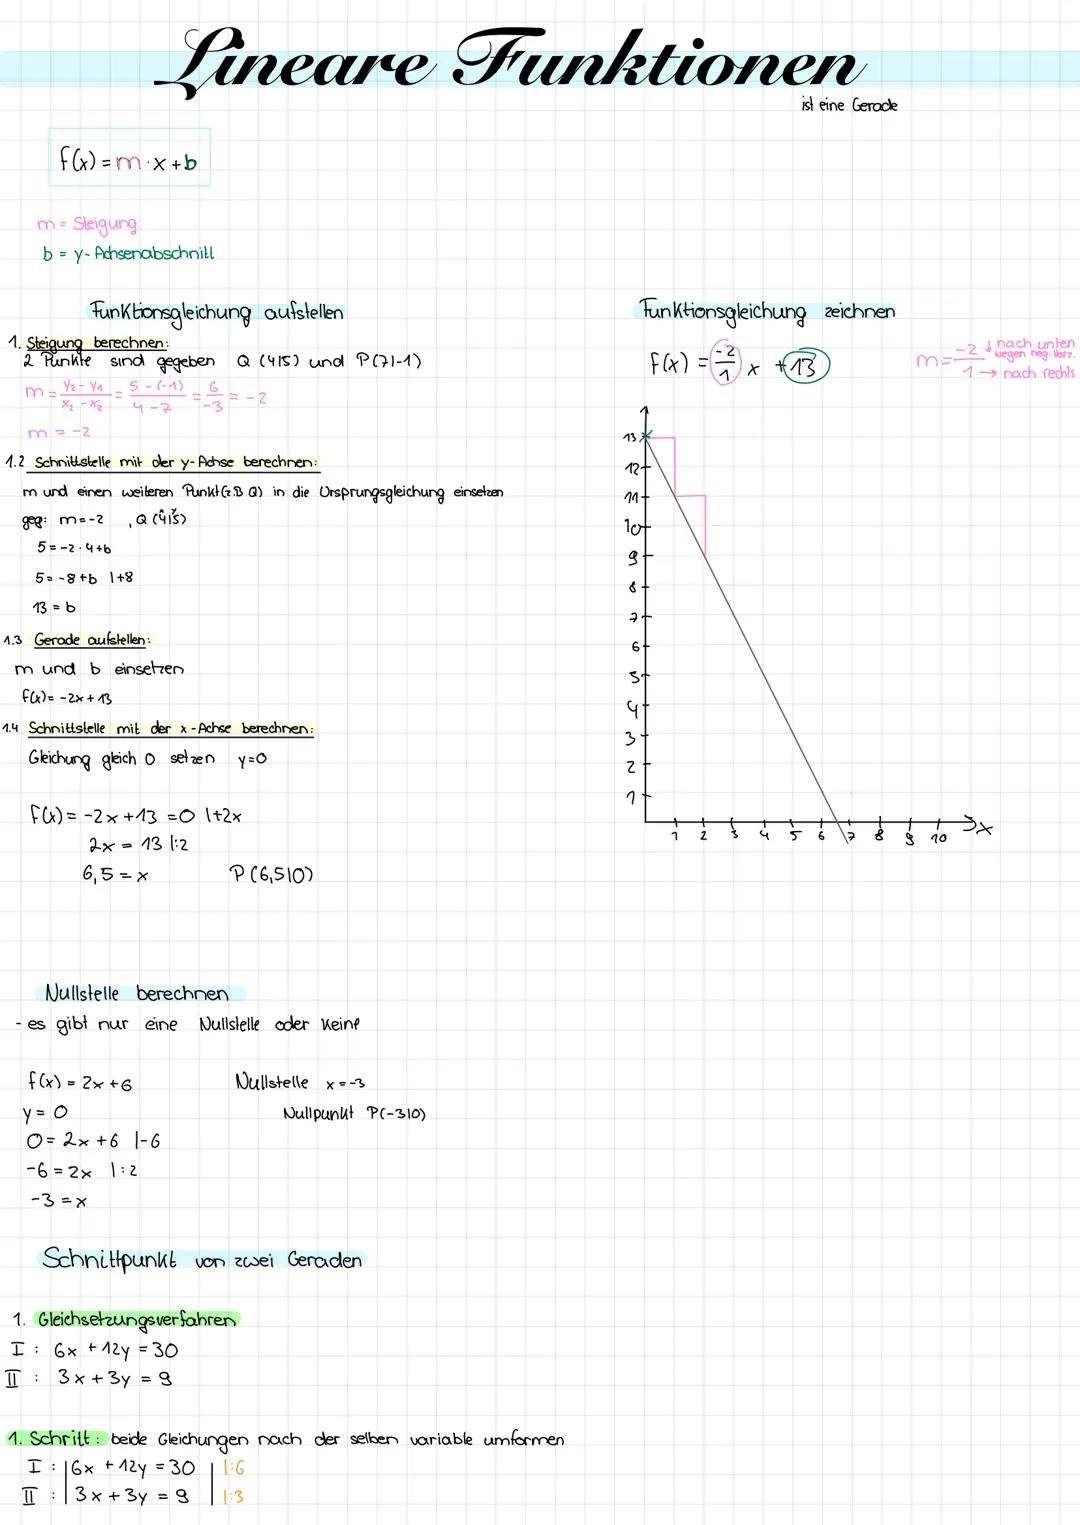 Lineare Funktionen
ist eine Gerade
f(x) = m · x + b
m = Steigung
b = y-Achsenabschnitt
Funktionsgleichung aufstellen
1. Steigung berechnen:
2 Punkte sind gegeben Q (4|5) und P(7|-1)
m = y₂ - y₁ / x₂ - x₂ = 5 - (-1) / 4 - 7 = 6 / -3 = -2
m = -2
1.2 Schnittstelle mit der y-Achse berechnen:
m und einen weiteren Punkt (z.B Q) in die Ursprungsgleichung einsetzen
geg: m = -2 , Q (4|5)
5 = -2 · 4 + b
5 = -8 + b |+8
13 = b
1.3 Gerade aufstellen:
m und b einsetzen
f(x) = -2x + 13
1.4 Schnittstelle mit der x-Achse berechnen:
Gleichung gleich 0 setzen y=0
f(x) = -2x + 13 = 0 |+2x
2x = 13 |:2
6,5 = x P (6,5|0)
Funktionsgleichung zeichnen
f(x) = -2/1 x + 13
m = -2 ↓ nach unten wegen neg. Vorz.
1 → nach rechts
13
12
11
10
9
8
7
6
5
4
3
2
1
1 2 3 4 5 6 7 8 9 10 x
Nullstelle berechnen
- es gibt nur eine Nullstelle oder keine
f(x) = 2x + 6 Nullstelle x = -3
y = 0 Nullpunkt P(-3|0)
0 = 2x + 6 |-6
-6 = 2x |:2
-3 = x
Schnittpunkt von zwei Geraden
1. Gleichsetzungsverfahren
I : 6x + 12y = 30
II : 3x + 3y = 9
1. Schritt: beide Gleichungen nach der selben variable umformen
I : |6x + 12y = 30 | |:6
II : |3x + 3y = 9 | |:3